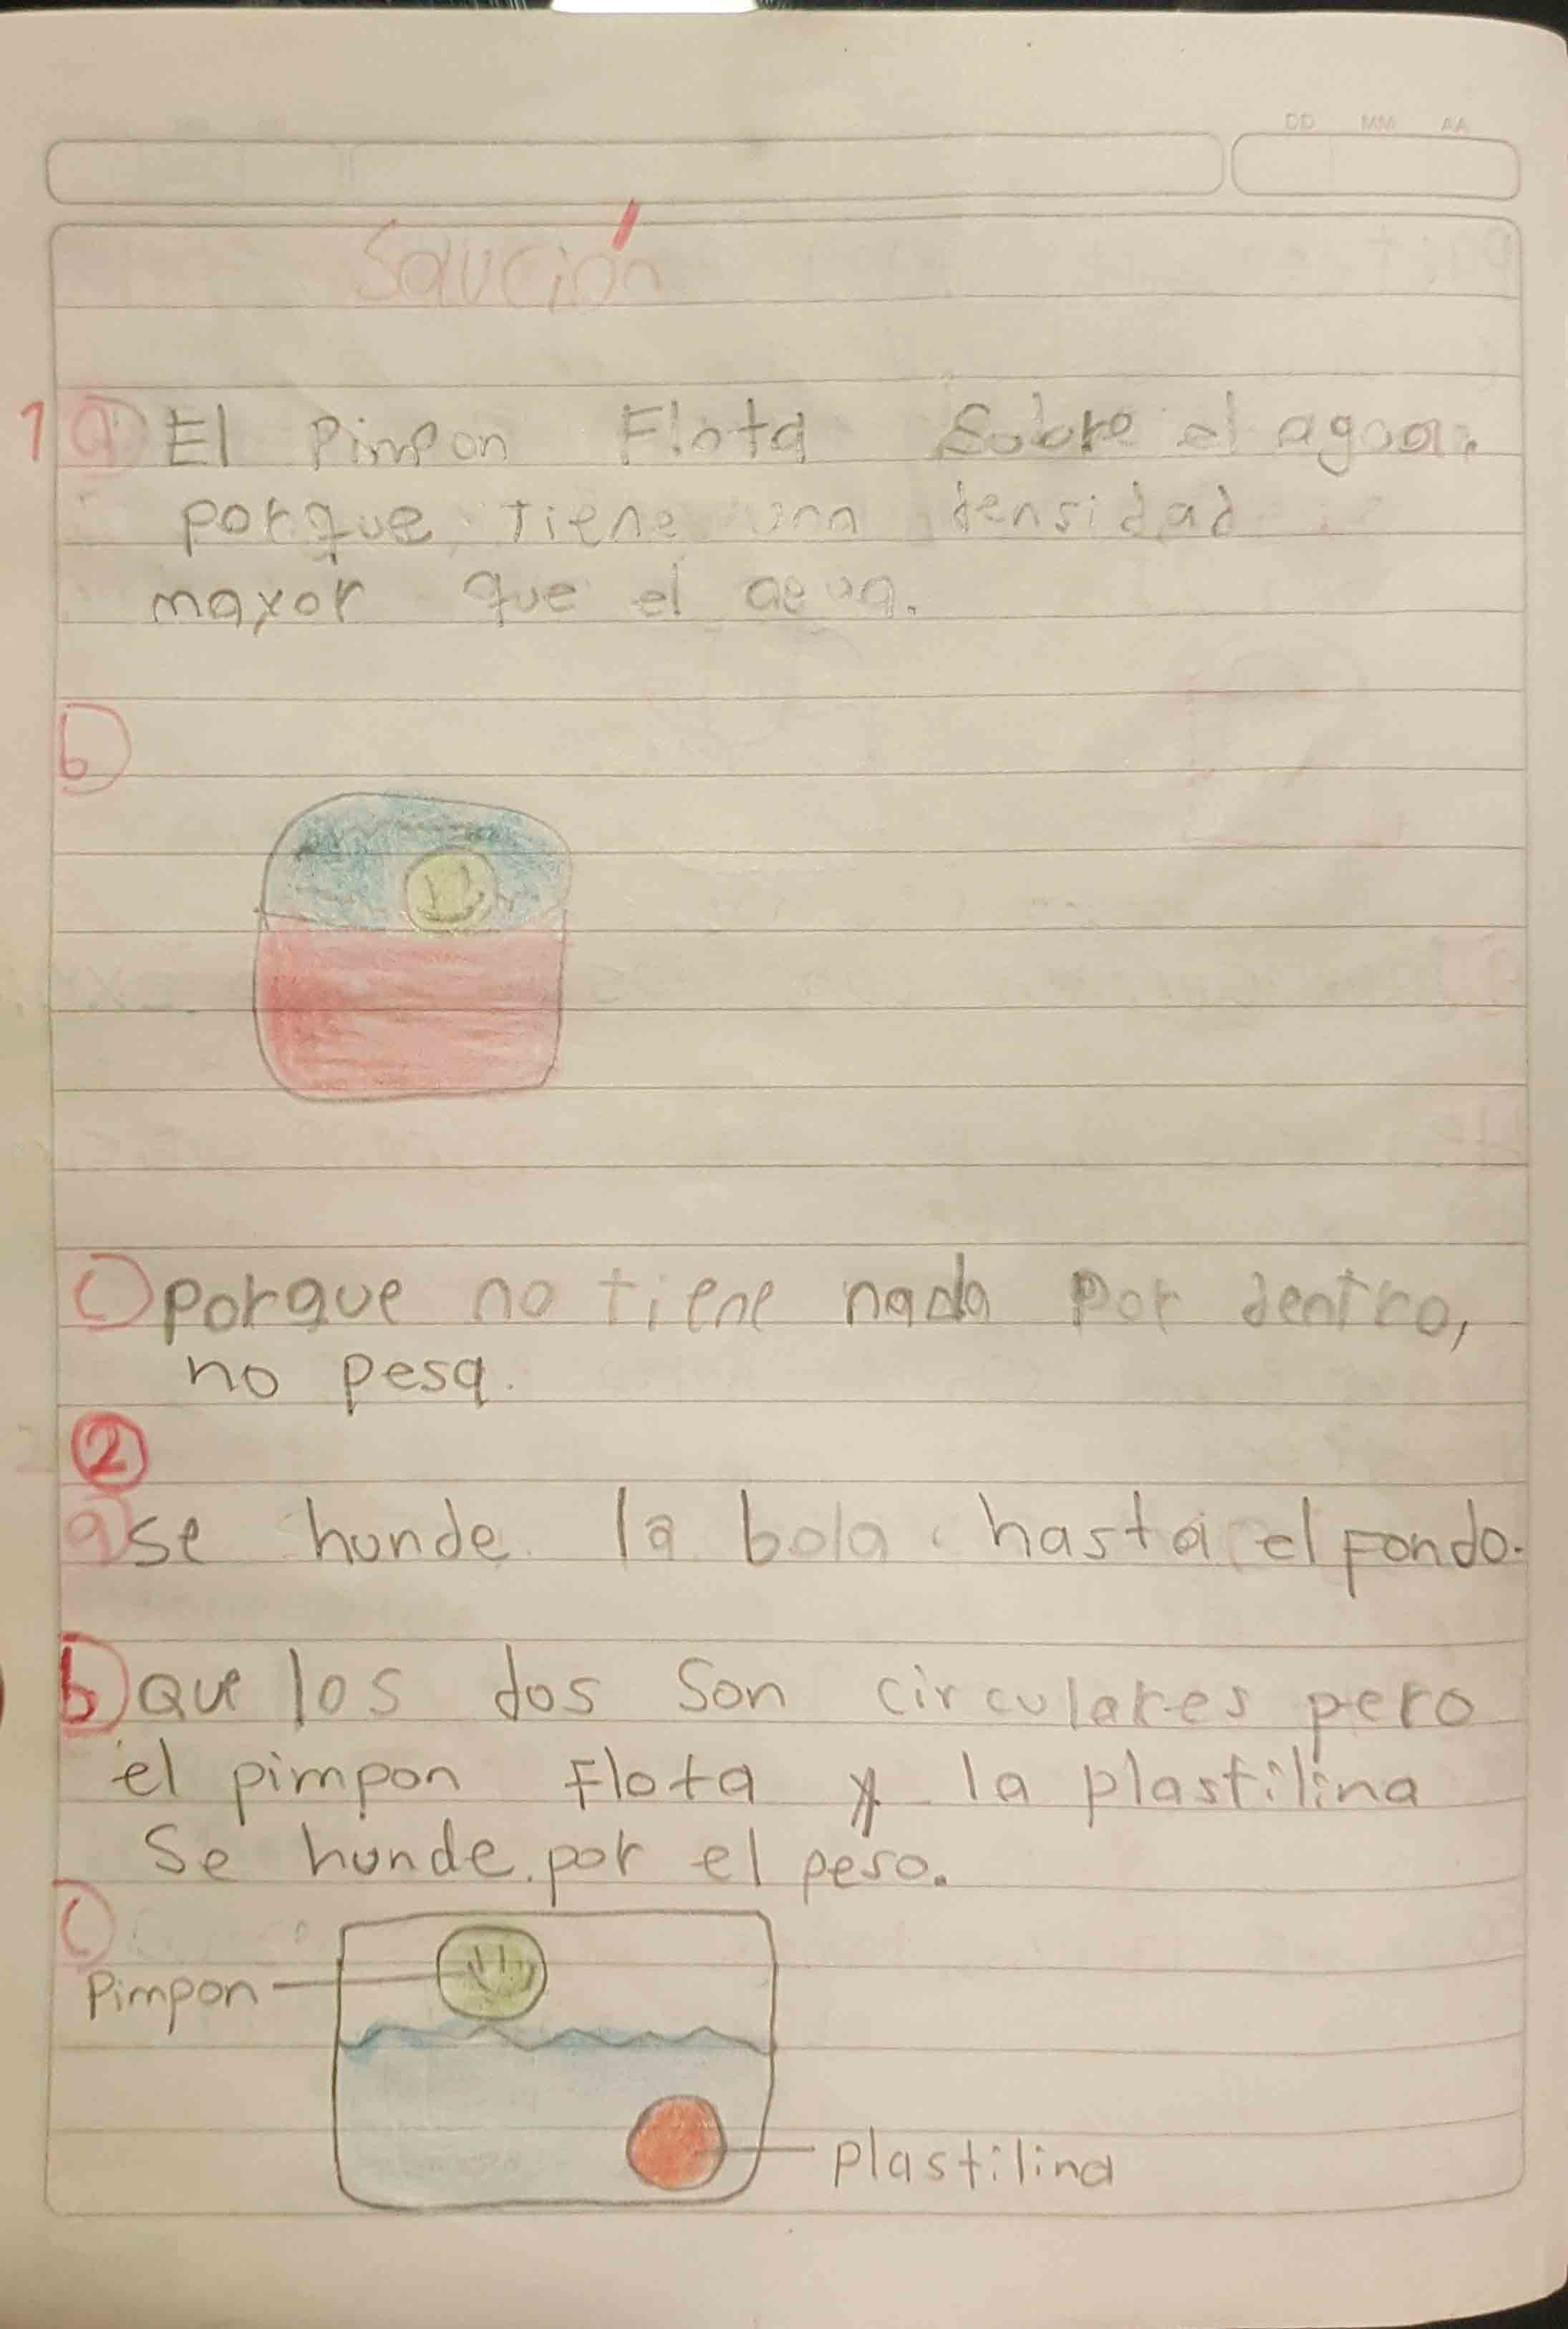 DD MM AA
Solución
1 a) El Pimpon Flota Sobre el agua.
porque tiene una densidad
mayor que el agua.
b)
c) porque no tiene nada por dentro,
no pesa.
2
a) se hunde la bola hasta el fondo.
b) Que los dos Son circulares pero
el pimpon flota y la plastilina
Se hunde por el peso.
c)
Pimpon
Plastilina